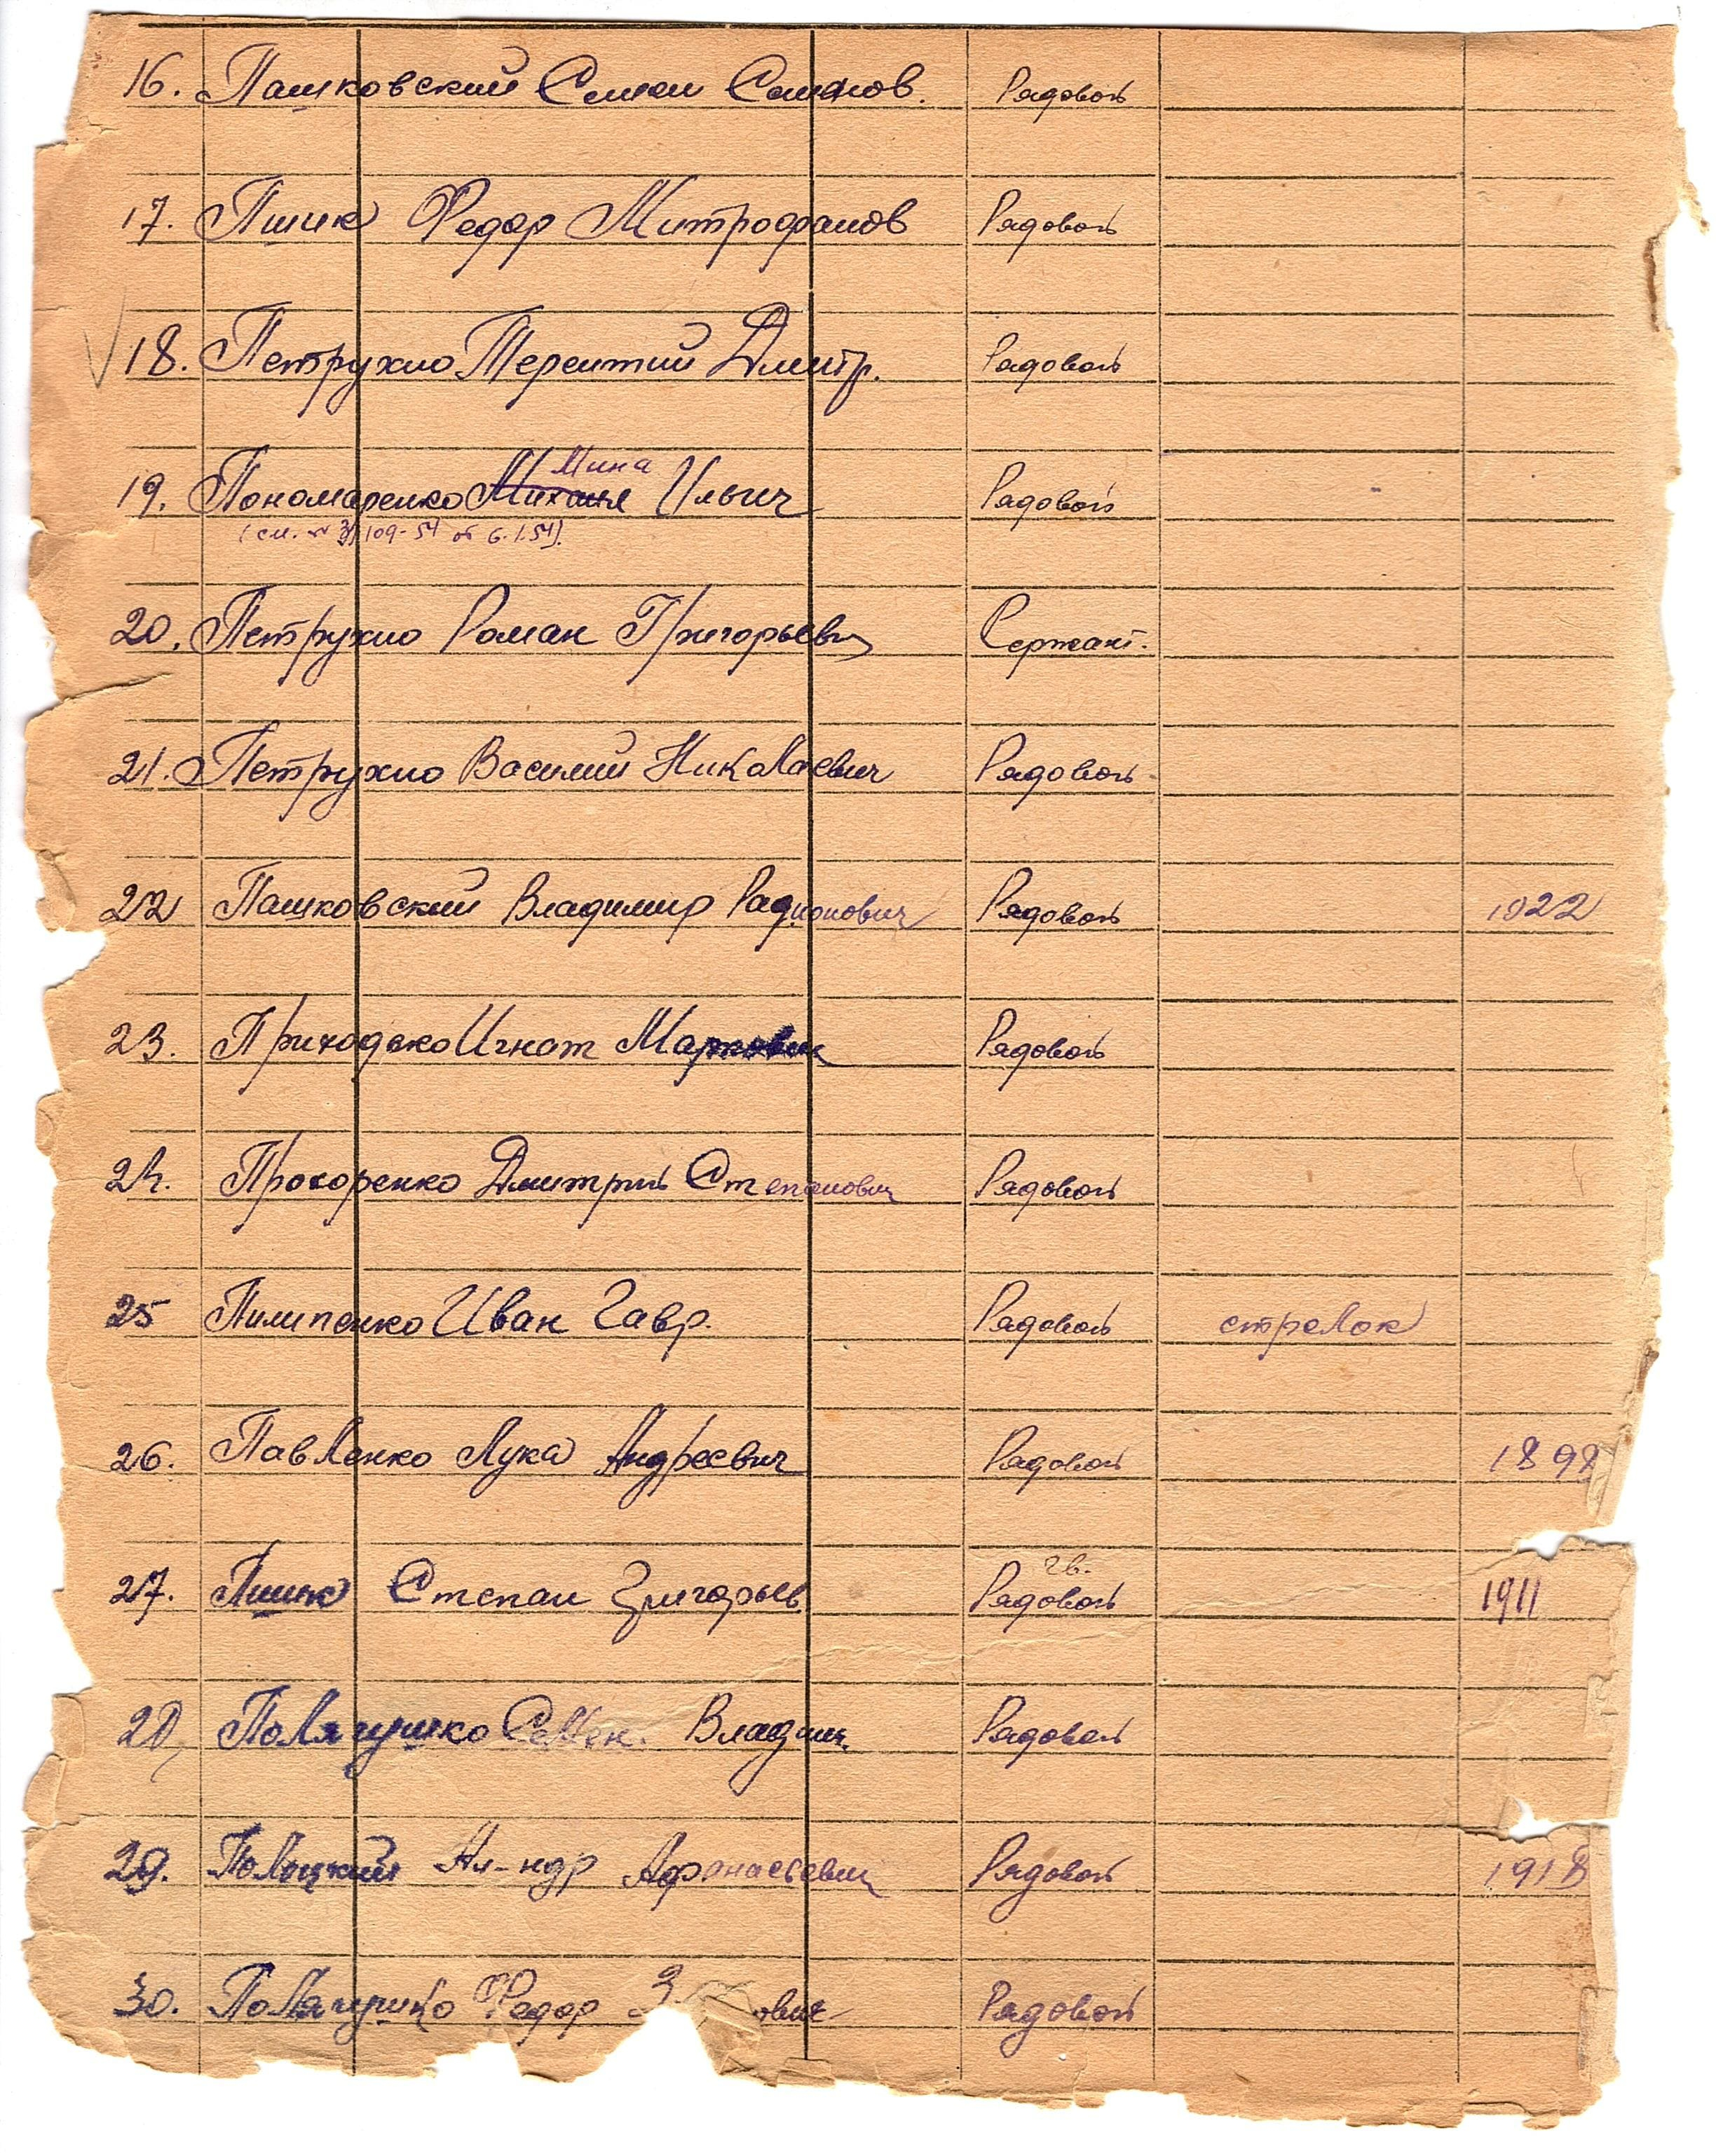 16. Пашковский Семен Семенов. Рядовой
17. Пшик Федор Митрофанов Рядовой
18. Петрухно Терентий Дмитр. Рядовой
Мина
19. Пономаренко Михаил Ильич Рядовой
(см. № 3/109-54 от 6.1.54).
20. Петрухно Роман Григорьевич Сержант.
21. Петрухно Василий Николаевич Рядовой
22 Пашковский Владимир Радионович Рядовой 1922
23. Приходько Игнат Маркович Рядовой
24. Прохоренко Дмитрий Степанович Рядовой
25 Пилипенко Иван Гавр. Рядовой стрелок
26. Павленко Лука Андреевич Рядовой 1898
гв.
27. Пшик Степан Григорьев Рядовой 1911
28, Полягушко Семен. Владим. Рядовой
29. Полоцкий Ал-ндр Афонасьевич Рядовой 1918
30. Полягушко Федор Рядовой